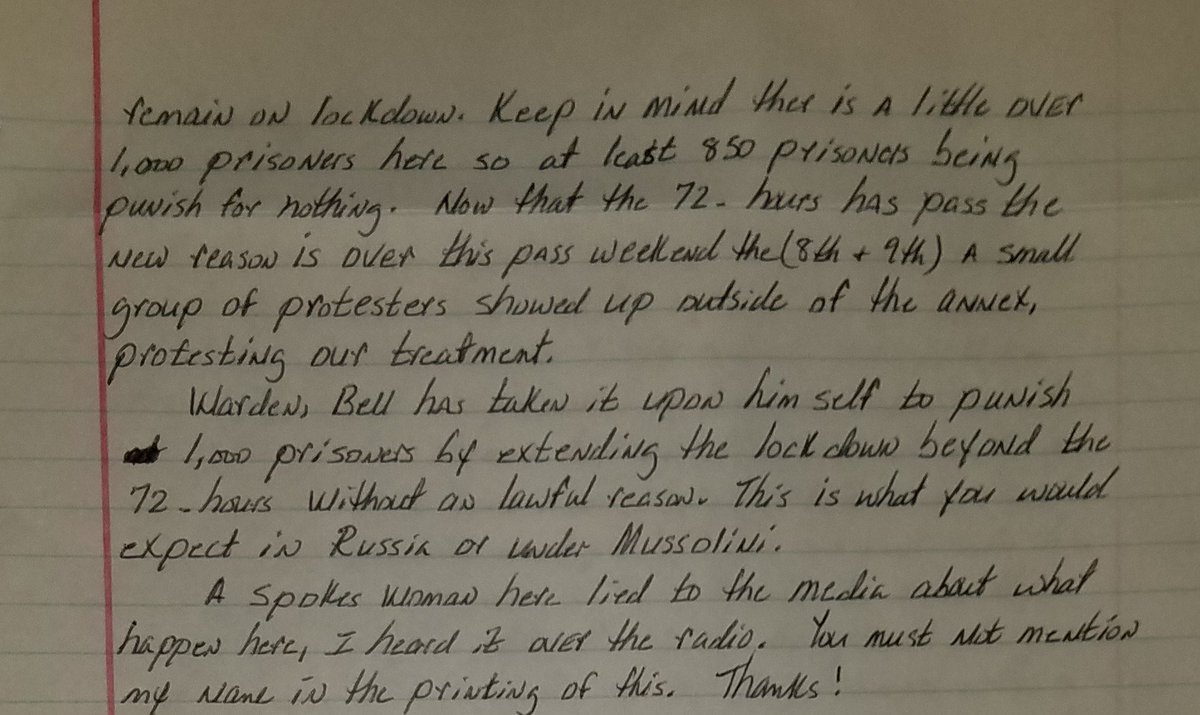 remain on lockdown. Keep in mind ther is a little over
1,000 prisoners here so at least 850 prisoners being
punish for nothing. Now that the 72-hours has pass the
new reason is over this pass weekend the (8th + 9th) a small
group of protesters showed up outside of the annex,
protesting our treatment.
Warden, Bell has taken it upon him self to punish
1,000 prisoners by extending the lock down beyond the
72-hours without an lawful reason. This is what you would
expect in Russia or under Mussolini.
A spokes woman here lied to the media about what
happen here, I heard it over the radio. You must not mention
my name in the printing of this. Thanks!